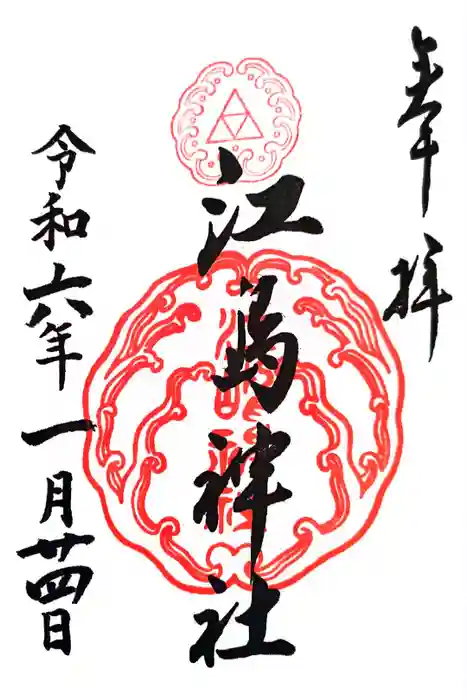 奉拝
江島神社
令和六年一月廿四日